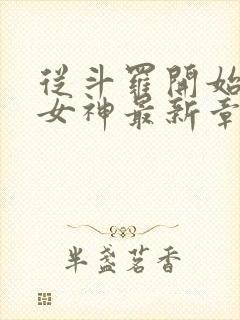 從斗羅開始
女神最新章
半盞茗香